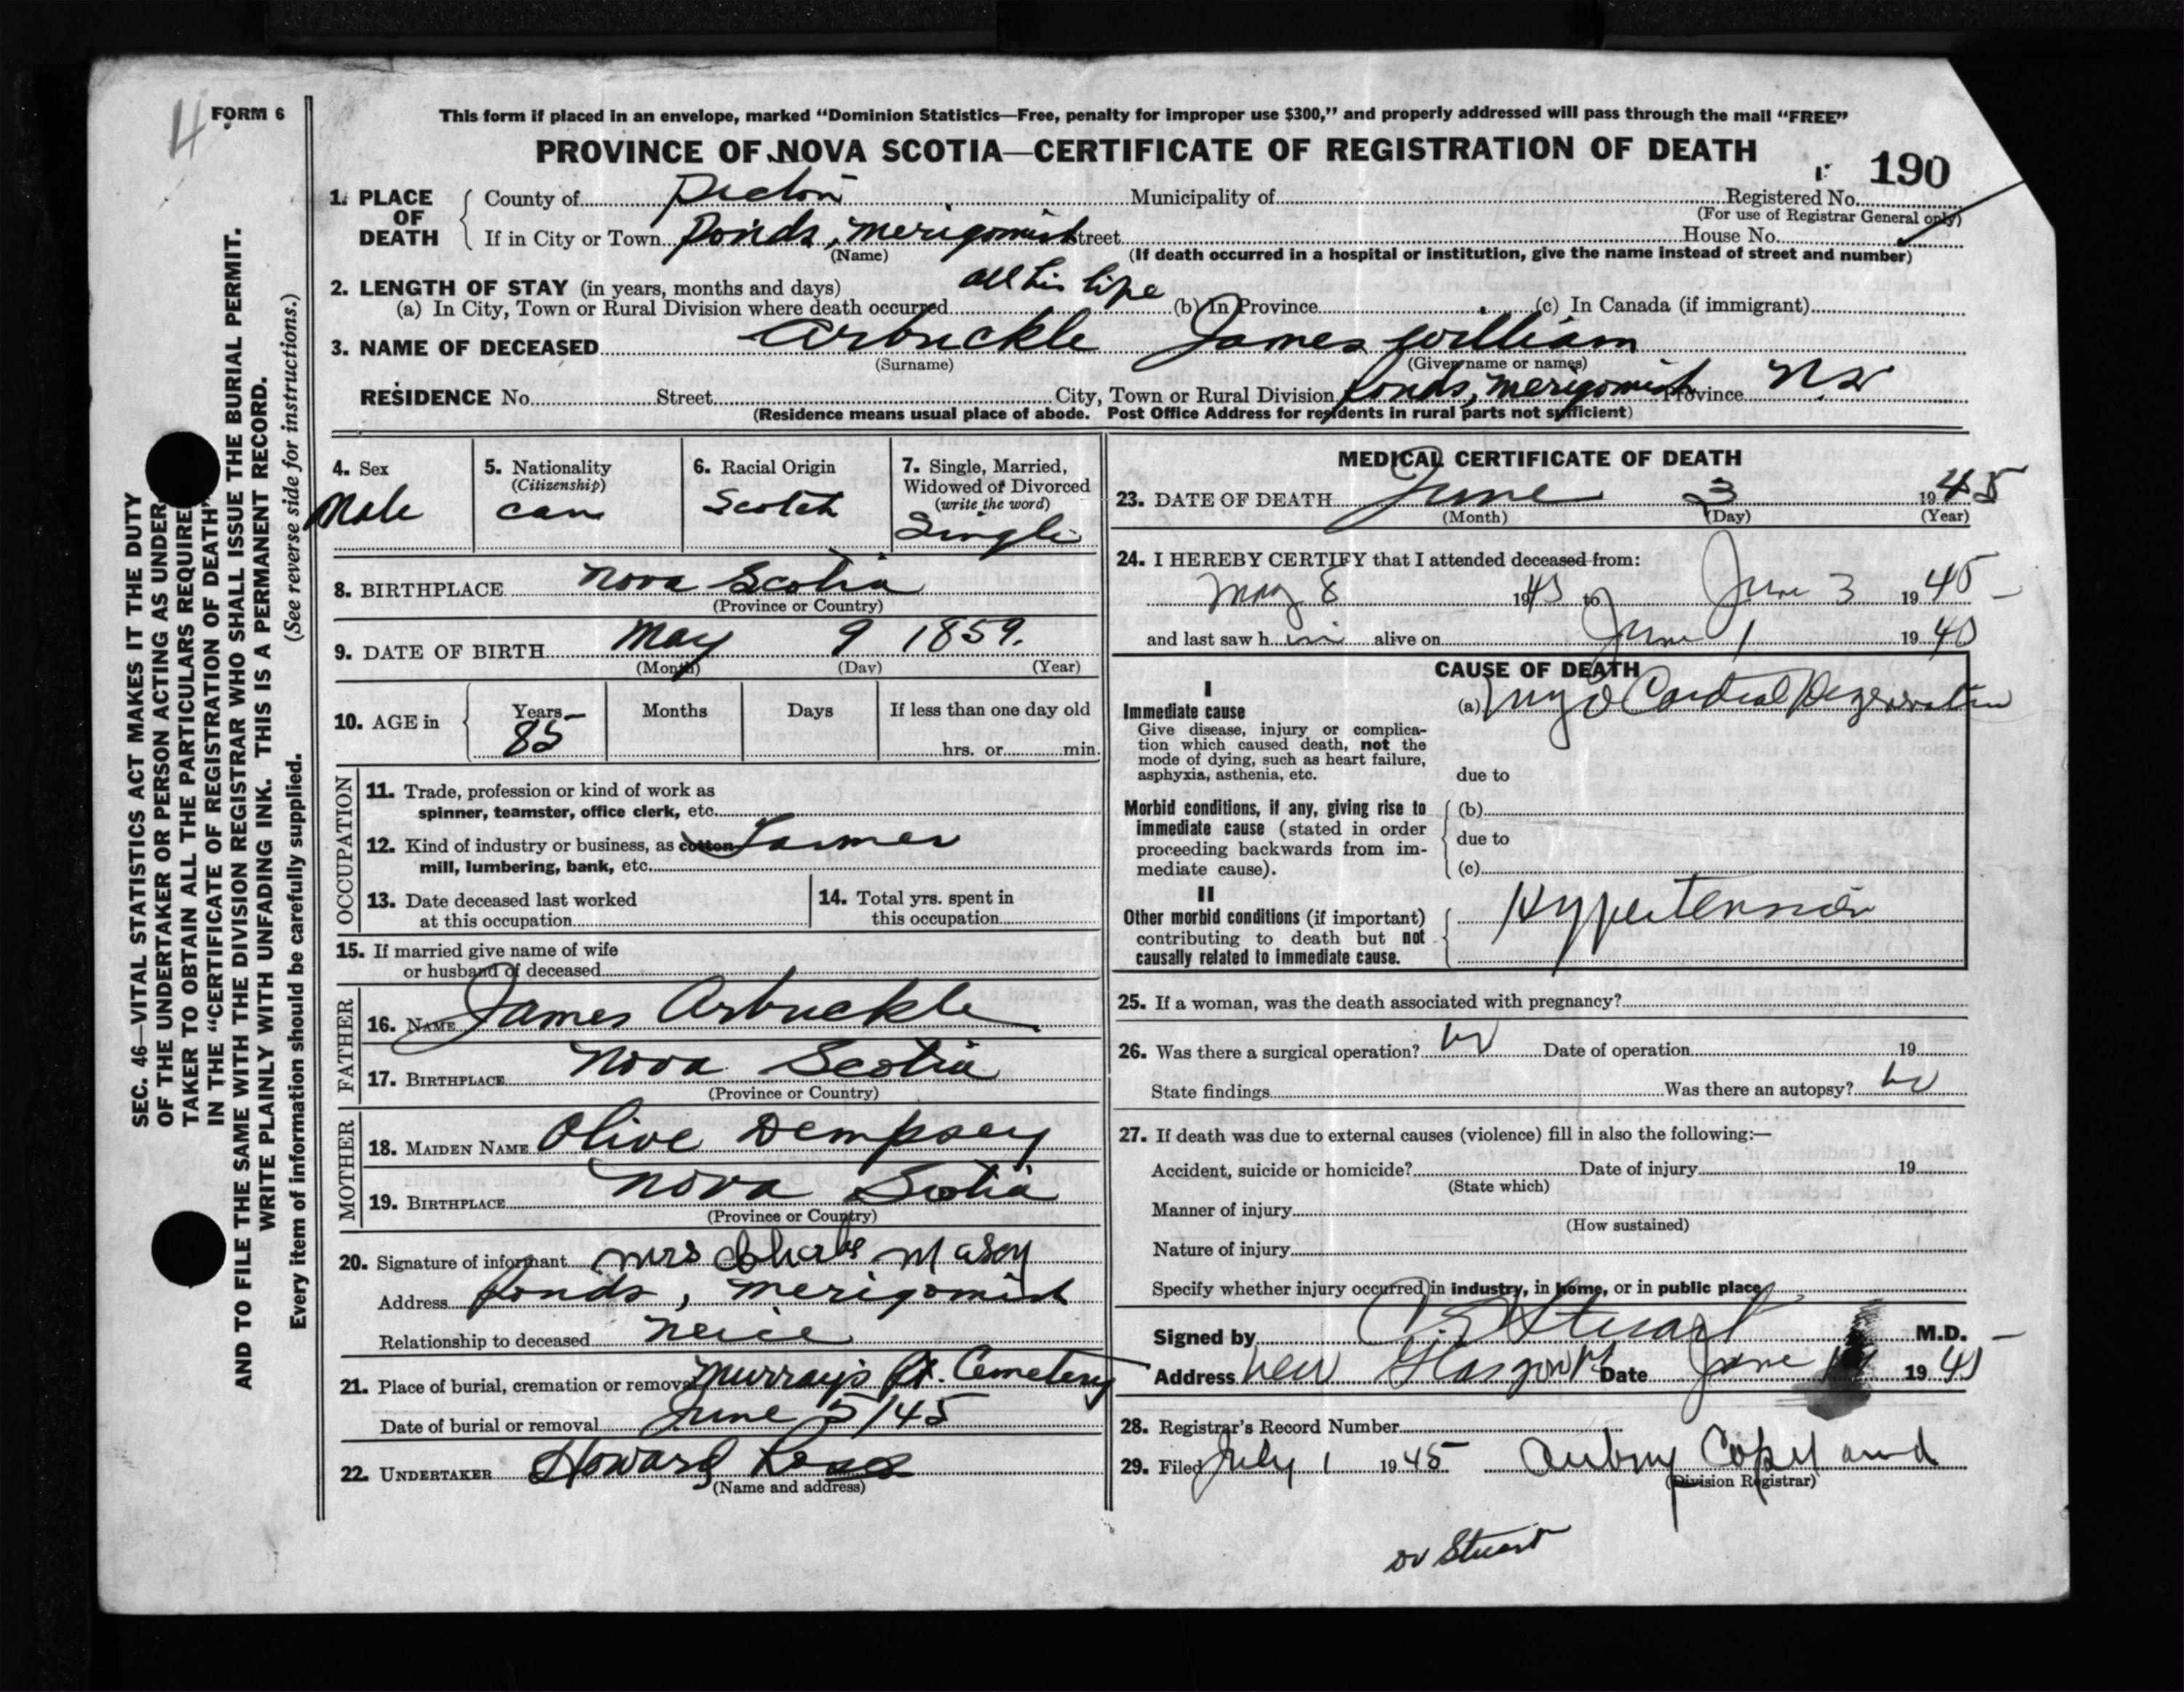 4
FORM 6
This form if placed in an envelope, marked "Dominion Statistics—Free, penalty for improper use $300," and properly addressed will pass through the mail "FREE"
PROVINCE OF NOVA SCOTIA—CERTIFICATE OF REGISTRATION OF DEATH
190
1. PLACE OF DEATH
County of Pictou Municipality of Registered No.
(For use of Registrar General only)
If in City or Town Ponds, Merigomish Street House No.
(Name) (If death occurred in a hospital or institution, give the name instead of street and number)
2. LENGTH OF STAY (in years, months and days)
(a) In City, Town or Rural Division where death occurred all his life (b) In Province (c) In Canada (if immigrant)
3. NAME OF DECEASED Arbuckle James William
(Surname) (Given name or names)
RESIDENCE No. Street City, Town or Rural Division Ponds, Merigomish Province N.S.
(Residence means usual place of abode. Post Office Address for residents in rural parts not sufficient)
4. Sex
Male
5. Nationality
(Citizenship)
Can
6. Racial Origin
Scotch
7. Single, Married,
Widowed or Divorced
(write the word)
Single
8. BIRTHPLACE Nova Scotia
(Province or Country)
9. DATE OF BIRTH May 9 1859.
(Month) (Day) (Year)
10. AGE in Years Months Days If less than one day old
85 hrs. or min.
OCCUPATION
11. Trade, profession or kind of work as
spinner, teamster, office clerk, etc.
12. Kind of industry or business, as cotton Farmer
mill, lumbering, bank, etc.
13. Date deceased last worked
at this occupation
14. Total yrs. spent in
this occupation
15. If married give name of wife
or husband of deceased
FATHER
16. NAME James Arbuckle
17. BIRTHPLACE Nova Scotia
(Province or Country)
MOTHER
18. MAIDEN NAME Olive Dempsey
19. BIRTHPLACE Nova Scotia
(Province or Country)
20. Signature of informant Mrs Charles Mason
Address Ponds, Merigomish
Relationship to deceased Neice
21. Place of burial, cremation or removal Murray's Pt. Cemetery
Date of burial or removal June 5/45
22. UNDERTAKER Howard
(Name and address)
MEDICAL CERTIFICATE OF DEATH
23. DATE OF DEATH June 3 1945
(Month) (Day) (Year)
24. I HEREBY CERTIFY that I attended deceased from:
May 8 1945 to June 3 1945
and last saw him alive on June 1 1945
CAUSE OF DEATH
I
Immediate cause
Give disease, injury or complica-
tion which caused death, not the
mode of dying, such as heart failure,
asphyxia, asthenia, etc.
(a) Myo Cardial Degeneration
due to
Morbid conditions, if any, giving rise to
immediate cause (stated in order
proceeding backwards from im-
mediate cause).
(b)
due to
(c)
II
Other morbid conditions (if important)
contributing to death but not
causally related to immediate cause.
Hypertension
25. If a woman, was the death associated with pregnancy?
26. Was there a surgical operation? no Date of operation 19
State findings Was there an autopsy? no
27. If death was due to external causes (violence) fill in also the following:—
Accident, suicide or homicide? Date of injury 19
(State which)
Manner of injury
(How sustained)
Nature of injury
Specify whether injury occurred in industry, in home, or in public place
Signed by Stuart M.D.
Address New Glasgow Date June 1945
28. Registrar's Record Number
29. Filed July 1 1945 Aubrey Copeland
(Division Registrar)
Dr Stuart
SEC. 46—VITAL STATISTICS ACT MAKES IT THE DUTY
OF THE UNDERTAKER OR PERSON ACTING AS UNDER
TAKER TO OBTAIN ALL THE PARTICULARS REQUIRE
IN THE "CERTIFICATE OF REGISTRATION OF DEATH"
AND TO FILE THE SAME WITH THE DIVISION REGISTRAR WHO SHALL ISSUE THE BURIAL PERMIT.
WRITE PLAINLY WITH UNFADING INK. THIS IS A PERMANENT RECORD.
Every item of information should be carefully supplied. (See reverse side for instructions.)